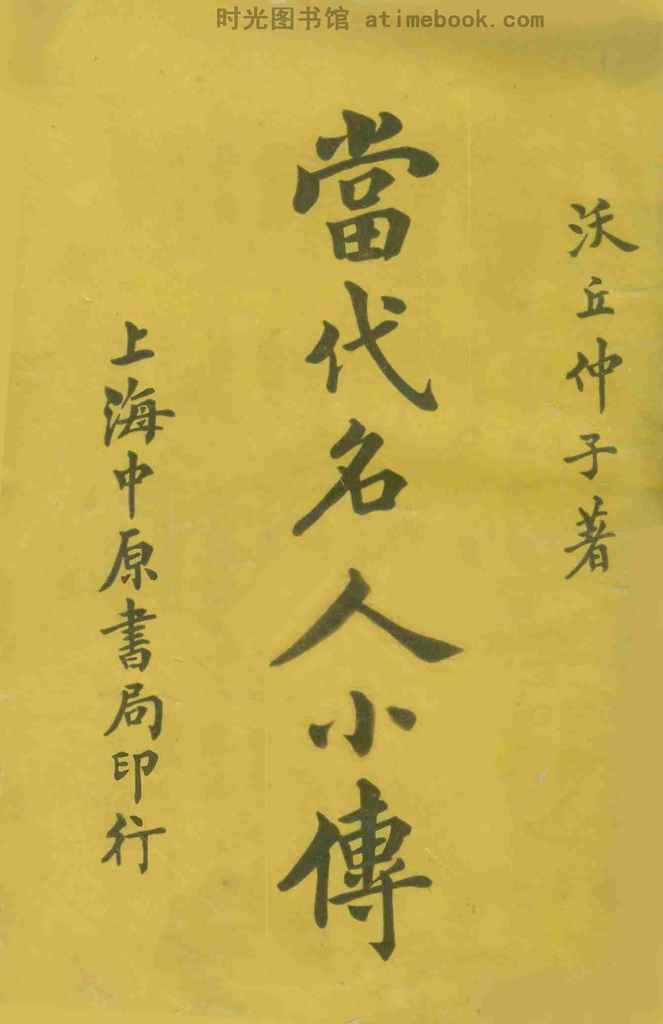 时光图书馆 atimebook.com
沃丘仲子著
當代名人小傳
上海中原書局印行